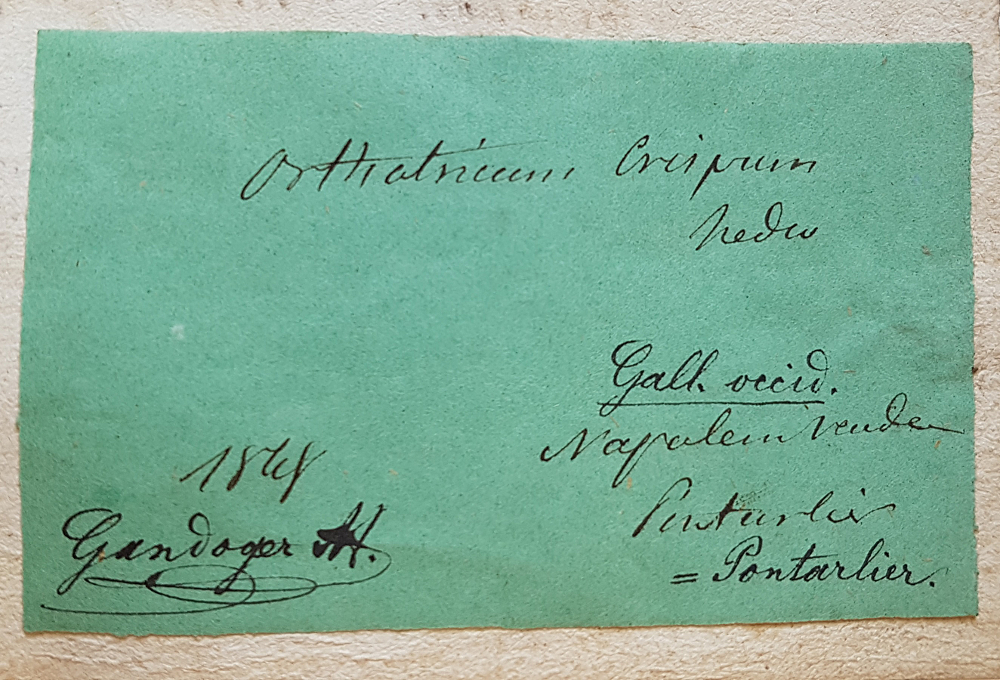 Orthotricum Crispum
hedw
Gall. occid.
Napoleon Vendee
Pontarlier
= Pontarlier.
1848
Gandoger M.